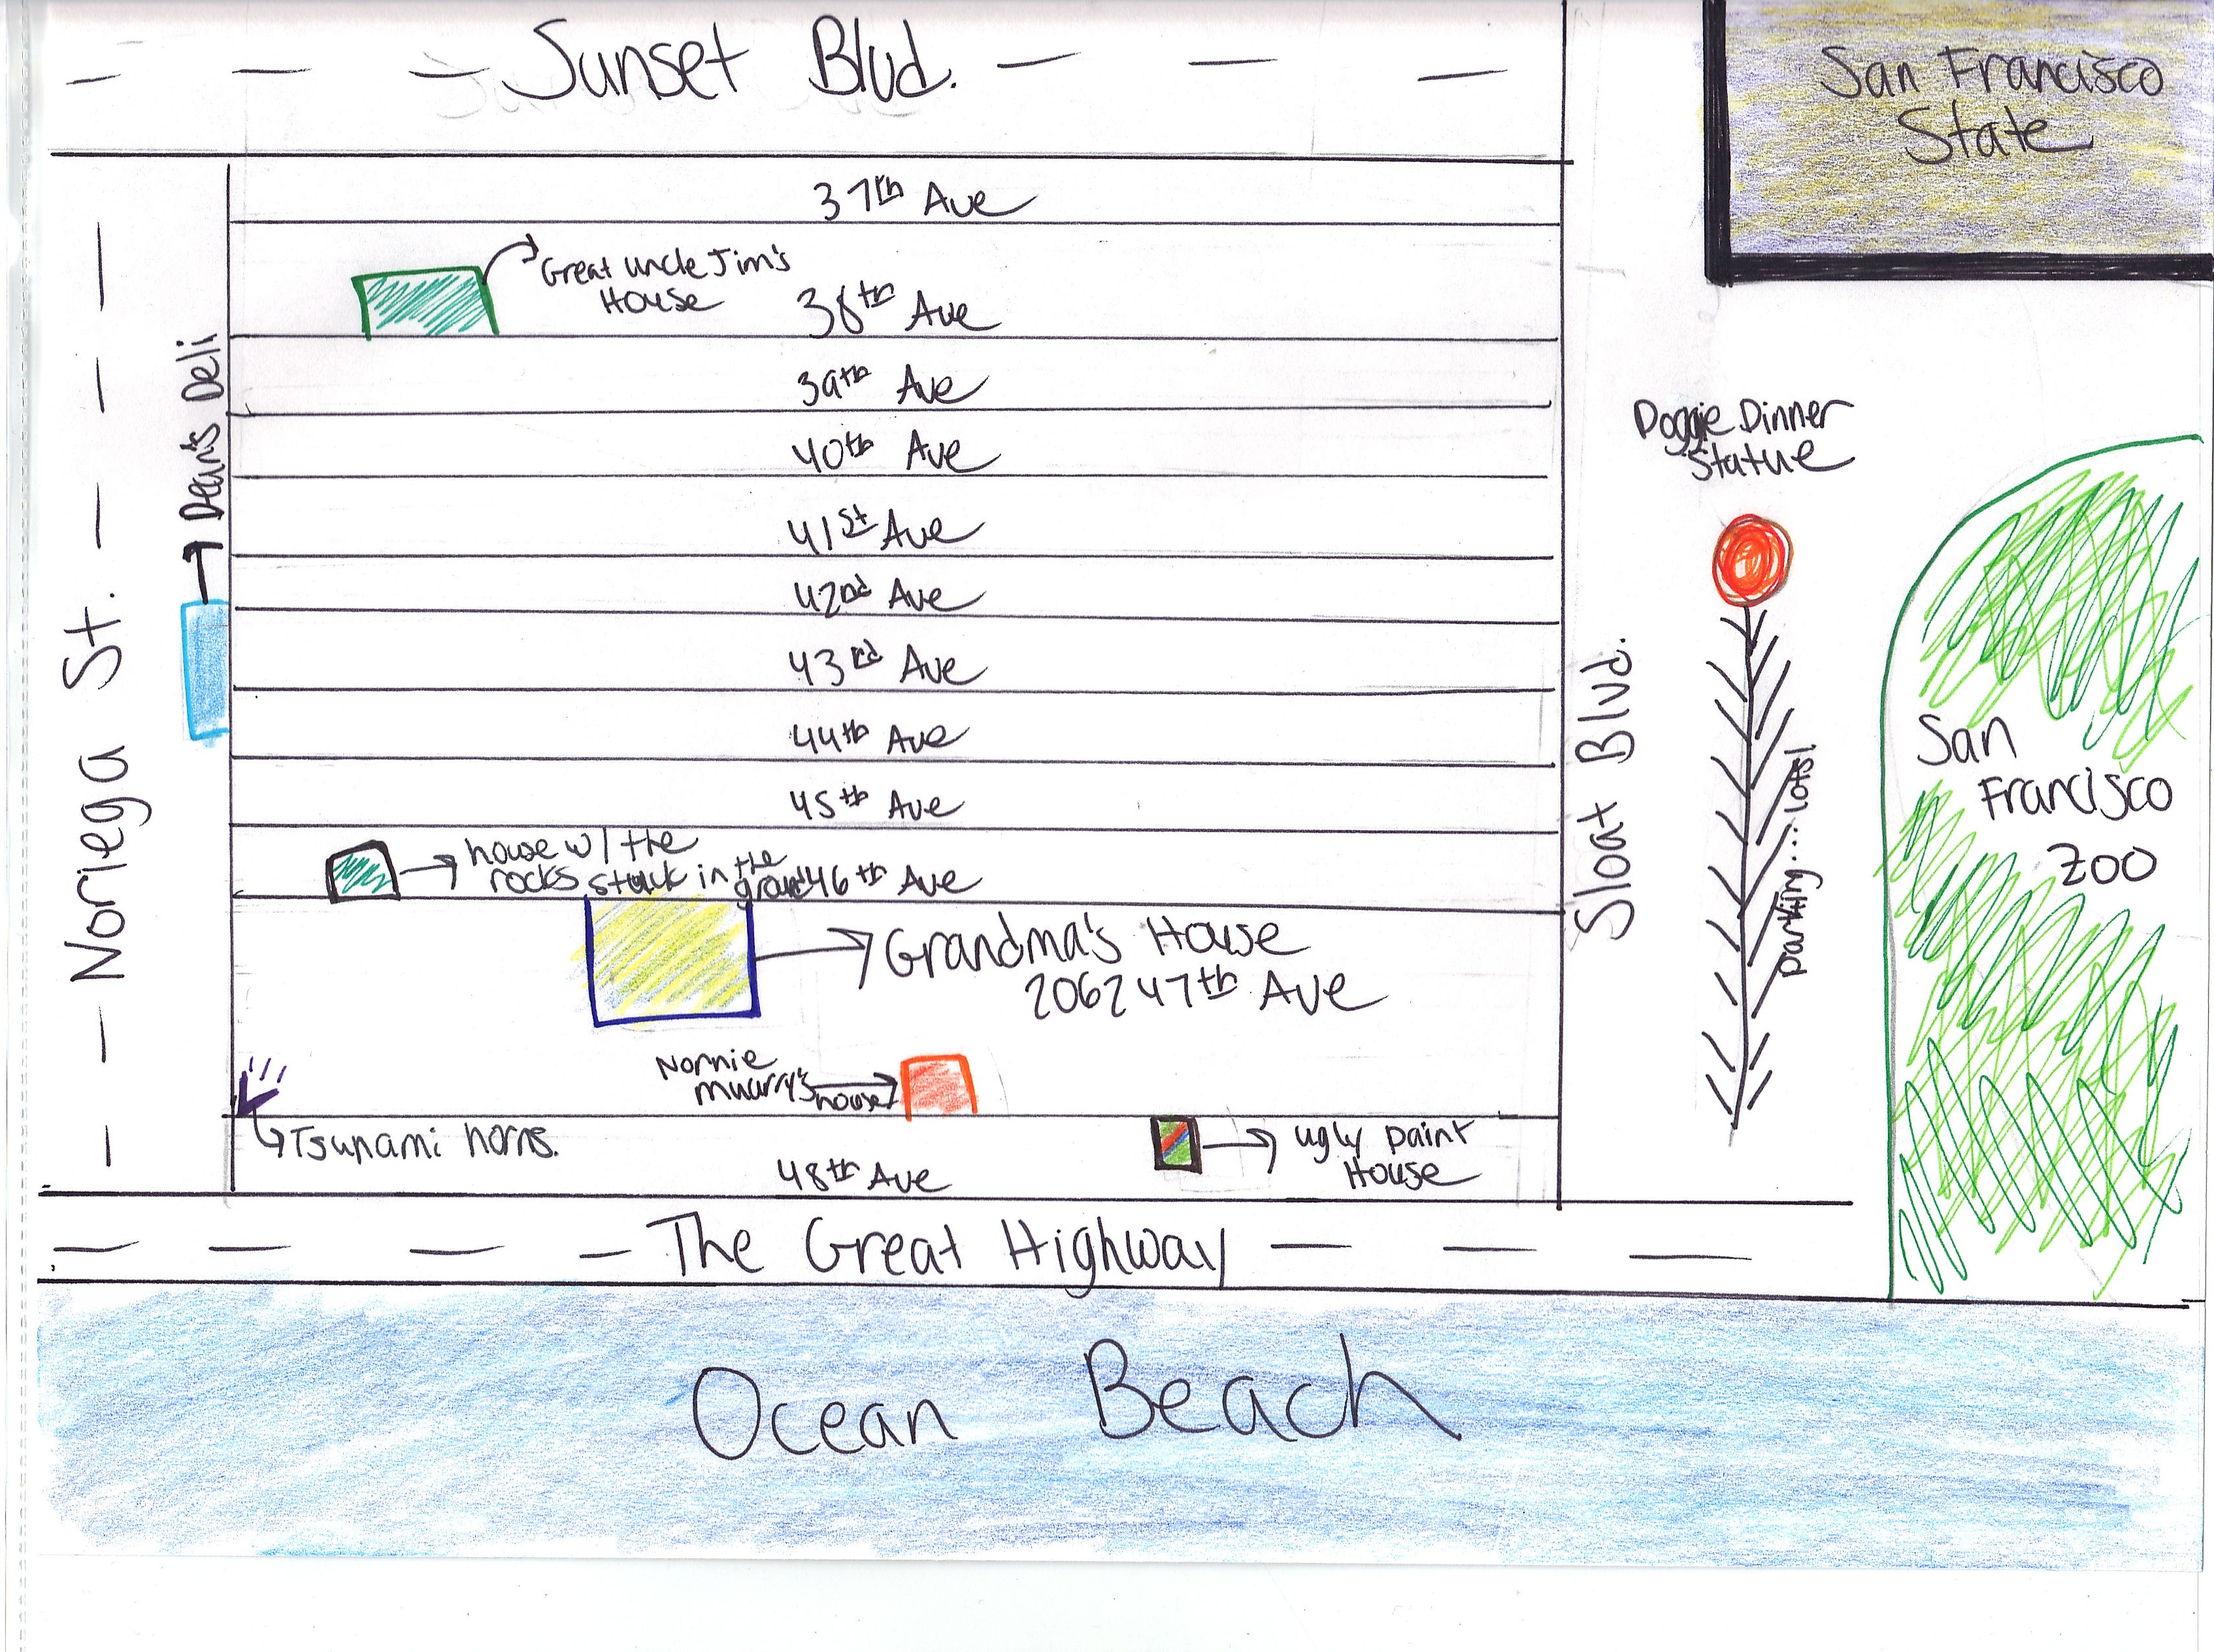 Sunset Blvd.
San Francisco
State
37th Ave
Great uncle Jim's
House
38th Ave
39th Ave
Dean's Deli
40th Ave
Doggie Dinner
Statue
41st Ave
42nd Ave
43rd Ave
Noriega St.
Sloat Blvd.
San
Francisco
Zoo
44th Ave
45th Ave
parking... lots!
house w/ the
rocks stuck in the
46th Ave
Grandma's House
2062 47th Ave
Nonnie
house
Tsunami horns.
ugly paint
House
48th Ave
The Great Highway
Ocean Beach